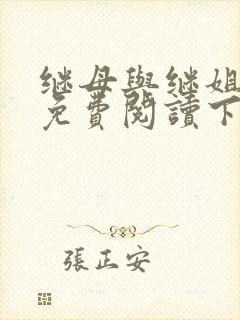 继母與继姐
免費閱讀下
張正安